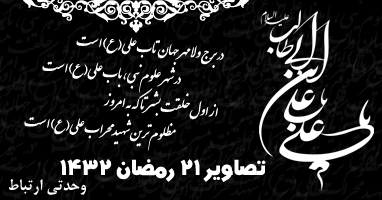 علیه السلام
یا علی بن ابی طالب
در برج ولا مهر جهان تاب علی (ع) است
در شهر علوم نبی، باب علی (ع) است
از اول خلقت بشر تا که به امروز
مظلوم ترین شهید محراب علی (ع) است
تصاویر ۲۱ رمضان ۱۴۳۲
وحدتی ارتباط